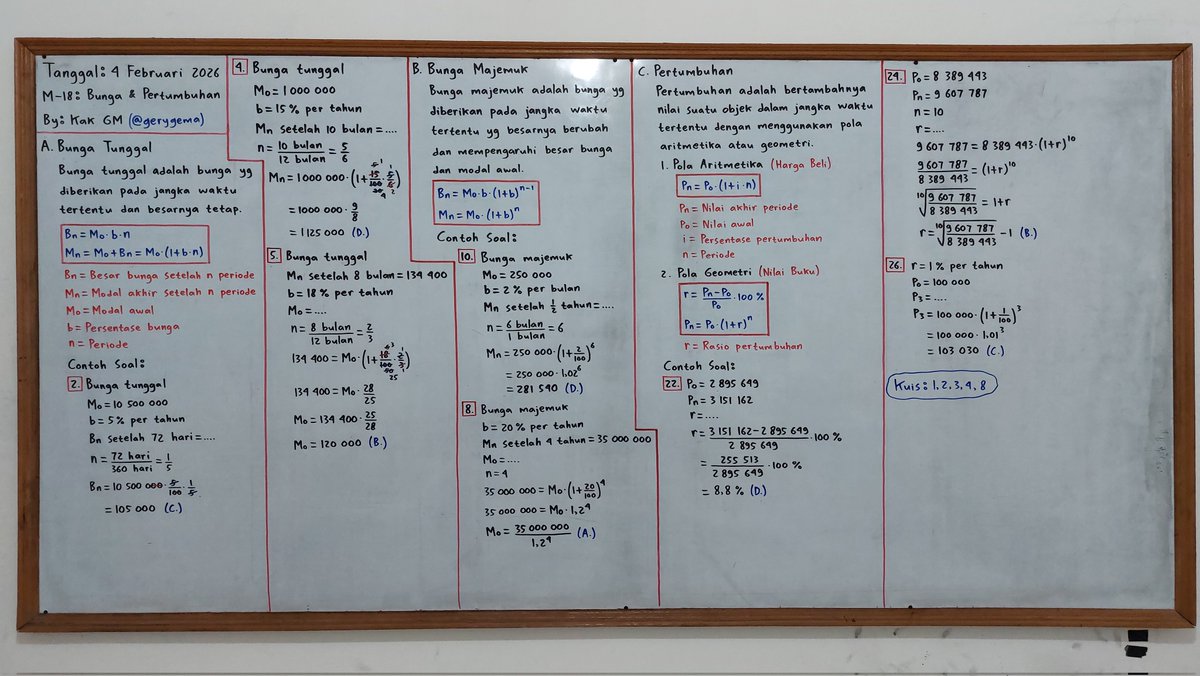 Tanggal: 4 Februari 2026
M-18: Bunga & Pertumbuhan
By: Kak GM (@gerygema)
A. Bunga Tunggal
Bunga tunggal adalah bunga yg
diberikan pada jangka waktu
tertentu dan besarnya tetap.
Bn = Mo·b·n
Mn = Mo + Bn = Mo·(1+b·n)
Bn = Besar bunga setelah n periode
Mn = Modal akhir setelah n periode
Mo = Modal awal
b = Persentase bunga
n = Periode
Contoh Soal:
2. Bunga tunggal
Mo = 10 500 000
b = 5% per tahun
Bn setelah 72 hari = ....
n = 72 hari/360 hari = 1/5
Bn = 10 500 000 · 5/100 · 1/5
= 105 000 (C.)
4. Bunga tunggal
Mo = 1 000 000
b = 15% per tahun
Mn setelah 10 bulan = ....
n = 10 bulan/12 bulan = 5/6
Mn = 1 000 000 · (1 + 15/100 · 5/6)
= 1 000 000 · 9/8
= 1 125 000 (D.)
5. Bunga tunggal
Mn setelah 8 bulan = 134 400
b = 18% per tahun
Mo = ....
n = 8 bulan/12 bulan = 2/3
134 400 = Mo · (1 + 18/100 · 2/3)
134 400 = Mo · 28/25
Mo = 134 400 · 25/28
Mo = 120 000 (B.)
B. Bunga Majemuk
Bunga majemuk adalah bunga yg
diberikan pada jangka waktu
tertentu yg besarnya berubah
dan mempengaruhi besar bunga
dan modal awal.
Bn = Mo·b·(1+b)ⁿ⁻¹
Mn = Mo·(1+b)ⁿ
Contoh Soal:
10. Bunga majemuk
Mo = 250 000
b = 2% per bulan
Mn setelah 1/2 tahun = ....
n = 6 bulan/1 bulan = 6
Mn = 250 000 · (1 + 2/100)⁶
= 250 000 · 1,02⁶
= 281 540 (D.)
8. Bunga majemuk
b = 20% per tahun
Mn setelah 4 tahun = 35 000 000
Mo = ....
n = 4
35 000 000 = Mo · (1 + 20/100)⁴
35 000 000 = Mo · 1,2⁴
Mo = 35 000 000/1,2⁴ (A.)
C. Pertumbuhan
Pertumbuhan adalah bertambahnya
nilai suatu objek dalam jangka waktu
tertentu dengan menggunakan pola
aritmetika atau geometri.
1. Pola Aritmetika (Harga Beli)
Pn = Po·(1+i·n)
Pn = Nilai akhir periode
Po = Nilai awal
i = Persentase pertumbuhan
n = Periode
2. Pola Geometri (Nilai Buku)
r = Pn-Po/Po · 100 %
Pn = Po·(1+r)ⁿ
r = Rasio pertumbuhan
Contoh Soal:
22. Po = 2 895 649
Pn = 3 151 162
r = ....
r = 3 151 162 - 2 895 649/2 895 649 · 100 %
= 255 513/2 895 649 · 100 %
= 8,8 % (D.)
24. Po = 8 389 443
Pn = 9 607 787
n = 10
r = ....
9 607 787 = 8 389 443 · (1+r)¹⁰
9 607 787/8 389 443 = (1+r)¹⁰
¹⁰√(9 607 787/8 389 443) = 1+r
r = ¹⁰√(9 607 787/8 389 443) - 1 (B.)
26. r = 1% per tahun
Po = 100 000
P3 = ....
P3 = 100 000 · (1 + 1/100)³
= 100 000 · 1,01³
= 103 030 (C.)
Kuis: 1, 2, 3, 4, 8